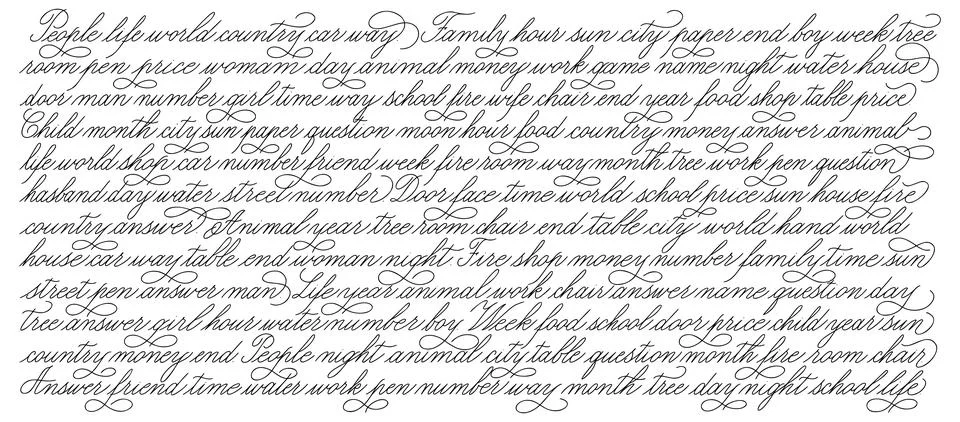 People life world country car way Family hour sun city paper end boy week tree
room pen price womam day animal money work game name night water house
door man number girl time way school fire wife chair end year food shop table price
Child month city sun paper question moon hour food country money answer animal
life world shop car number friend week fire room way month tree work pen question
hasband day water street number Door face time world school price sun house fire
country answer. Animal year tree room chair end table city world hand world
house car way table end woman night Fire shop money number family time sun
street pen answer man Life year animal work chair answer name question day
tree answer girl hour water number boy Week food school door price child year sun
country money end People night animal city table question month fire room chair
Answer friend time water work pen number way month tree day night school life